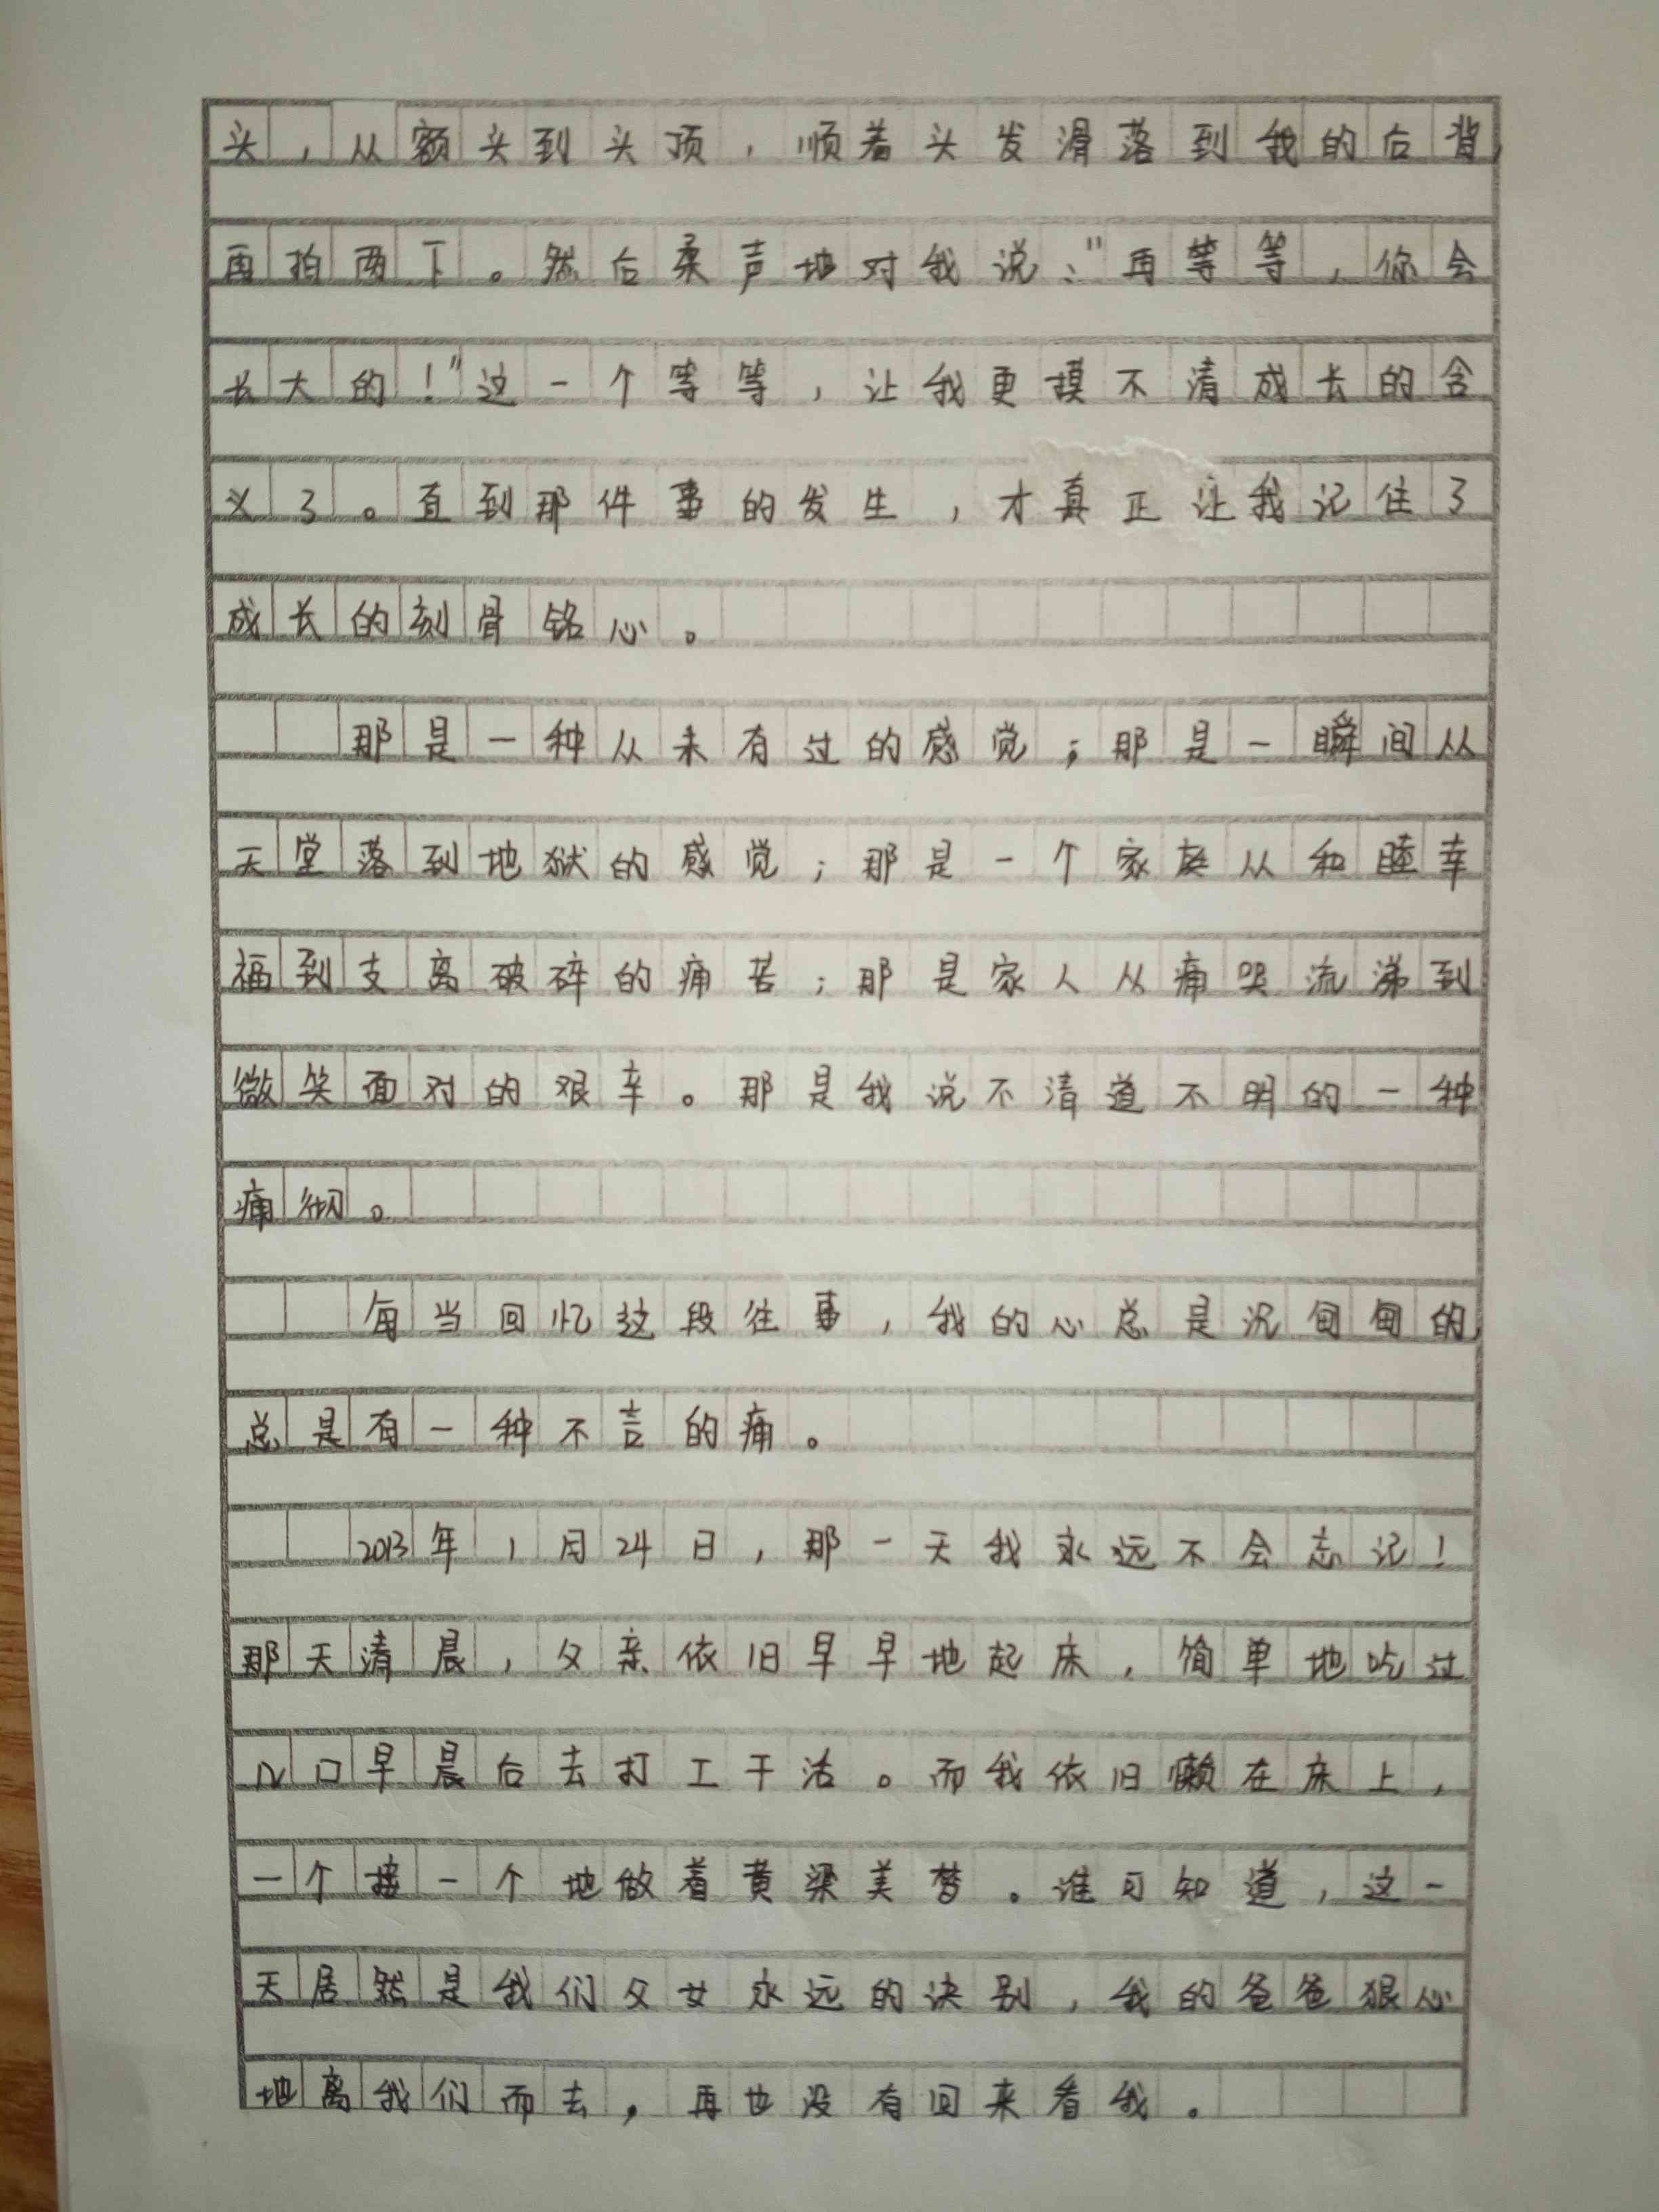 头，从额头到头顶，顺着头发滑落到我的后背，
再拍两下。然后柔声地对我说："再等等，你会
长大的！"这一个等等，让我更摸不清成长的含
义了。直到那件事的发生，才真正让我记住了
成长的刻骨铭心。
那是一种从未有过的感觉；那是一瞬间从
天堂落到地狱的感觉；那是一个家庭从和睦幸
福到支离破碎的痛苦；那是家人从痛哭流涕到
微笑面对的艰辛。那是我说不清道不明的一种
痛彻。
每当回忆这段往事，我的心总是沉甸甸的，
总是有一种不言的痛。
2013年1月24日，那一天我永远不会忘记！
那天清晨，父亲依旧早早地起床，简单地吃过
几口早晨后去打工干活。而我依旧懒在床上，
一个接一个地做着黄粱美梦。谁可知道，这一
天居然是我们父女永远的诀别，我的爸爸狠心
地离我们而去，再也没有回来看我。